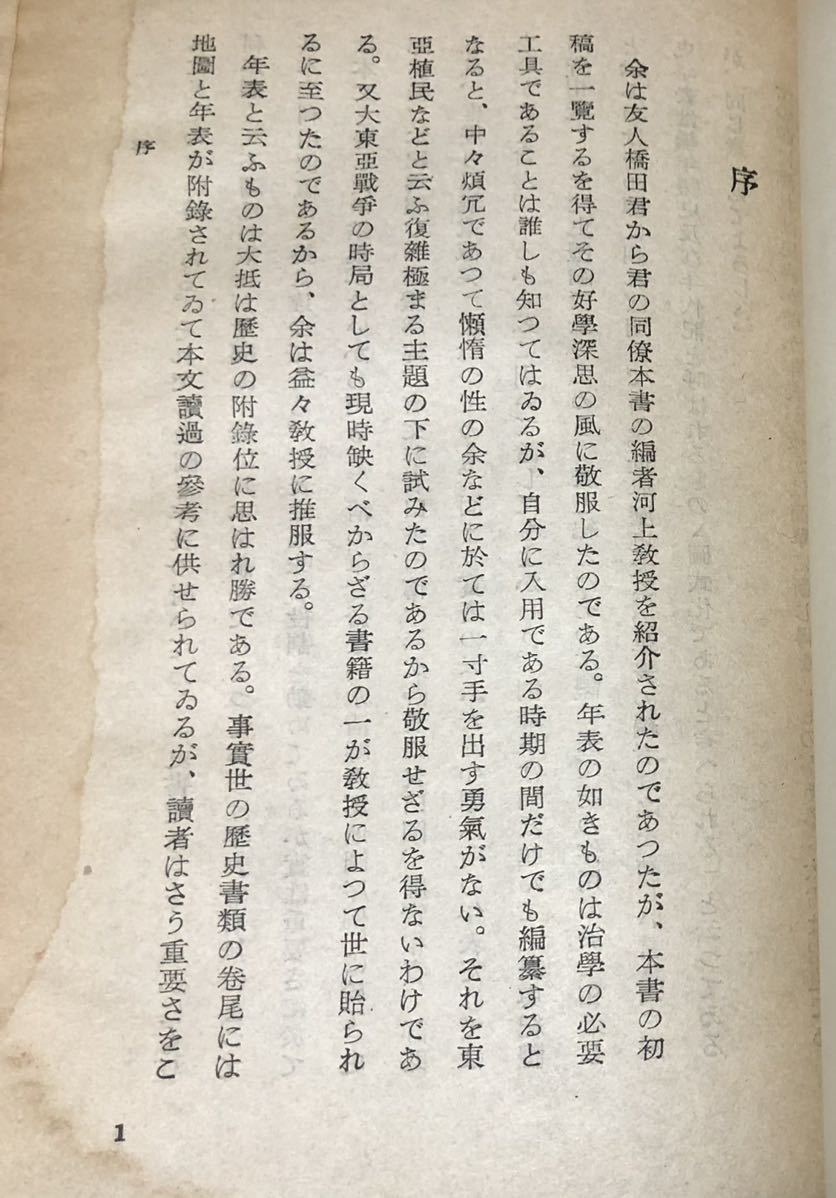 序
余は友人橋田君から君の同僚本書の編者河上敎授を紹介されたのであつたが、本書の初
稿を一覽するを得てその好學深思の風に敬服したのである。年表の如きものは治學の必要
工具であることは誰しも知つてはゐるが、自分に入用である時期の間だけでも編纂すると
なると、中々煩冗であつて懶惰の性の余などに於ては一寸手を出す勇氣がない。それを東
亞植民などと云ふ復雜極まる主題の下に試みたのであるから敬服せざるを得ないわけであ
る。又大東亞戰爭の時局としても現時缺くべからざる書籍の一が敎授によつて世に貽られ
るに至つたのであるから、余は益々敎授に推服する。
年表と云ふものは大抵は歷史の附錄位に思はれ勝である。事實世の歷史書類の卷尾には
地圖と年表が附錄されてゐて本文讀過の參考に供せられてゐるが、讀者はさう重要さをこ
序
1